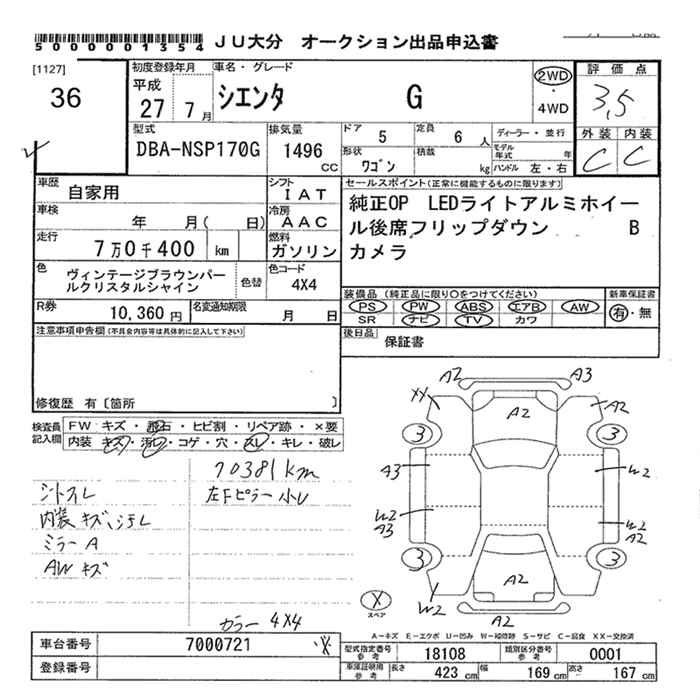 5000001354 JU大分 オークション出品申込書
[1127]
36
初度登録年月
平成
27 7月
車名・グレード
シエンタ G
2WD
・
4WD
評価点
3,5
外装 内装
C C
型式
DBA-NSP170G
排気量
1496 CC
ドア 5
定員 6 人
形状 ワゴン
積載 kg
ディーラー・並行
モデル年式 年
ハンドル 左・右
車歴 自家用
シフト IAT
車検 年 月( 日)
冷房 AAC
走行 7万0千400 km
燃料 ガソリン
色 ヴィンテージブラウンパールクリスタルシャイン
色替
色コード 4X4
R券 10,360円
名変通知期限 月 日
セールスポイント(正常に機能するものに限ります)
純正OP LEDライトアルミホイー
ル後席フリップダウン B
カメラ
装備品 (純正品に限り○をつけてください)
PS PW ABS エアB AW
SR ナビ TV カワ
新車保証書
有・無
後日品 保証書
注意事項申告欄(不具合内容等は具体的に記入して下さい)
修復歴 有〔箇所 〕
検査員記入欄
FW キズ・飛石・ヒビ割・リペア跡・×要
内装 キズ・汚レ・コゲ・穴・スレ・キレ・破レ
70381km
シートスレ
左Fピラー小U
内装キズ、汚レ
ミラーA
AWキズ
カラー 4X4
A2 A3
XX A2 A2
3 3
A3 W2
W2 A3 W2 A2
3 3
W2 A2
A2
X スペア
A-キズ E-エクボ U-凹み W-補修跡 S-サビ C-腐食 XX-交換済
車台番号 7000721
登録番号
型式指定番号 参考 18108
類別区分番号 参考 0001
車庫証明用 参考 長さ 423 cm 幅 169 cm 高さ 167 cm